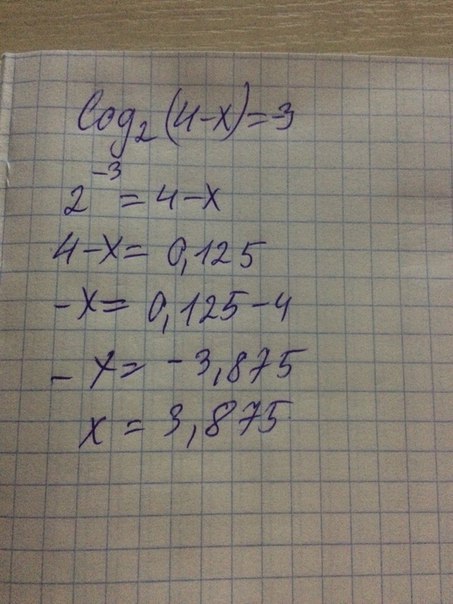 log₂(4-x)=-3
2⁻³=4-x
4-x=0,125
-x=0,125-4
-x=-3,875
x=3,875